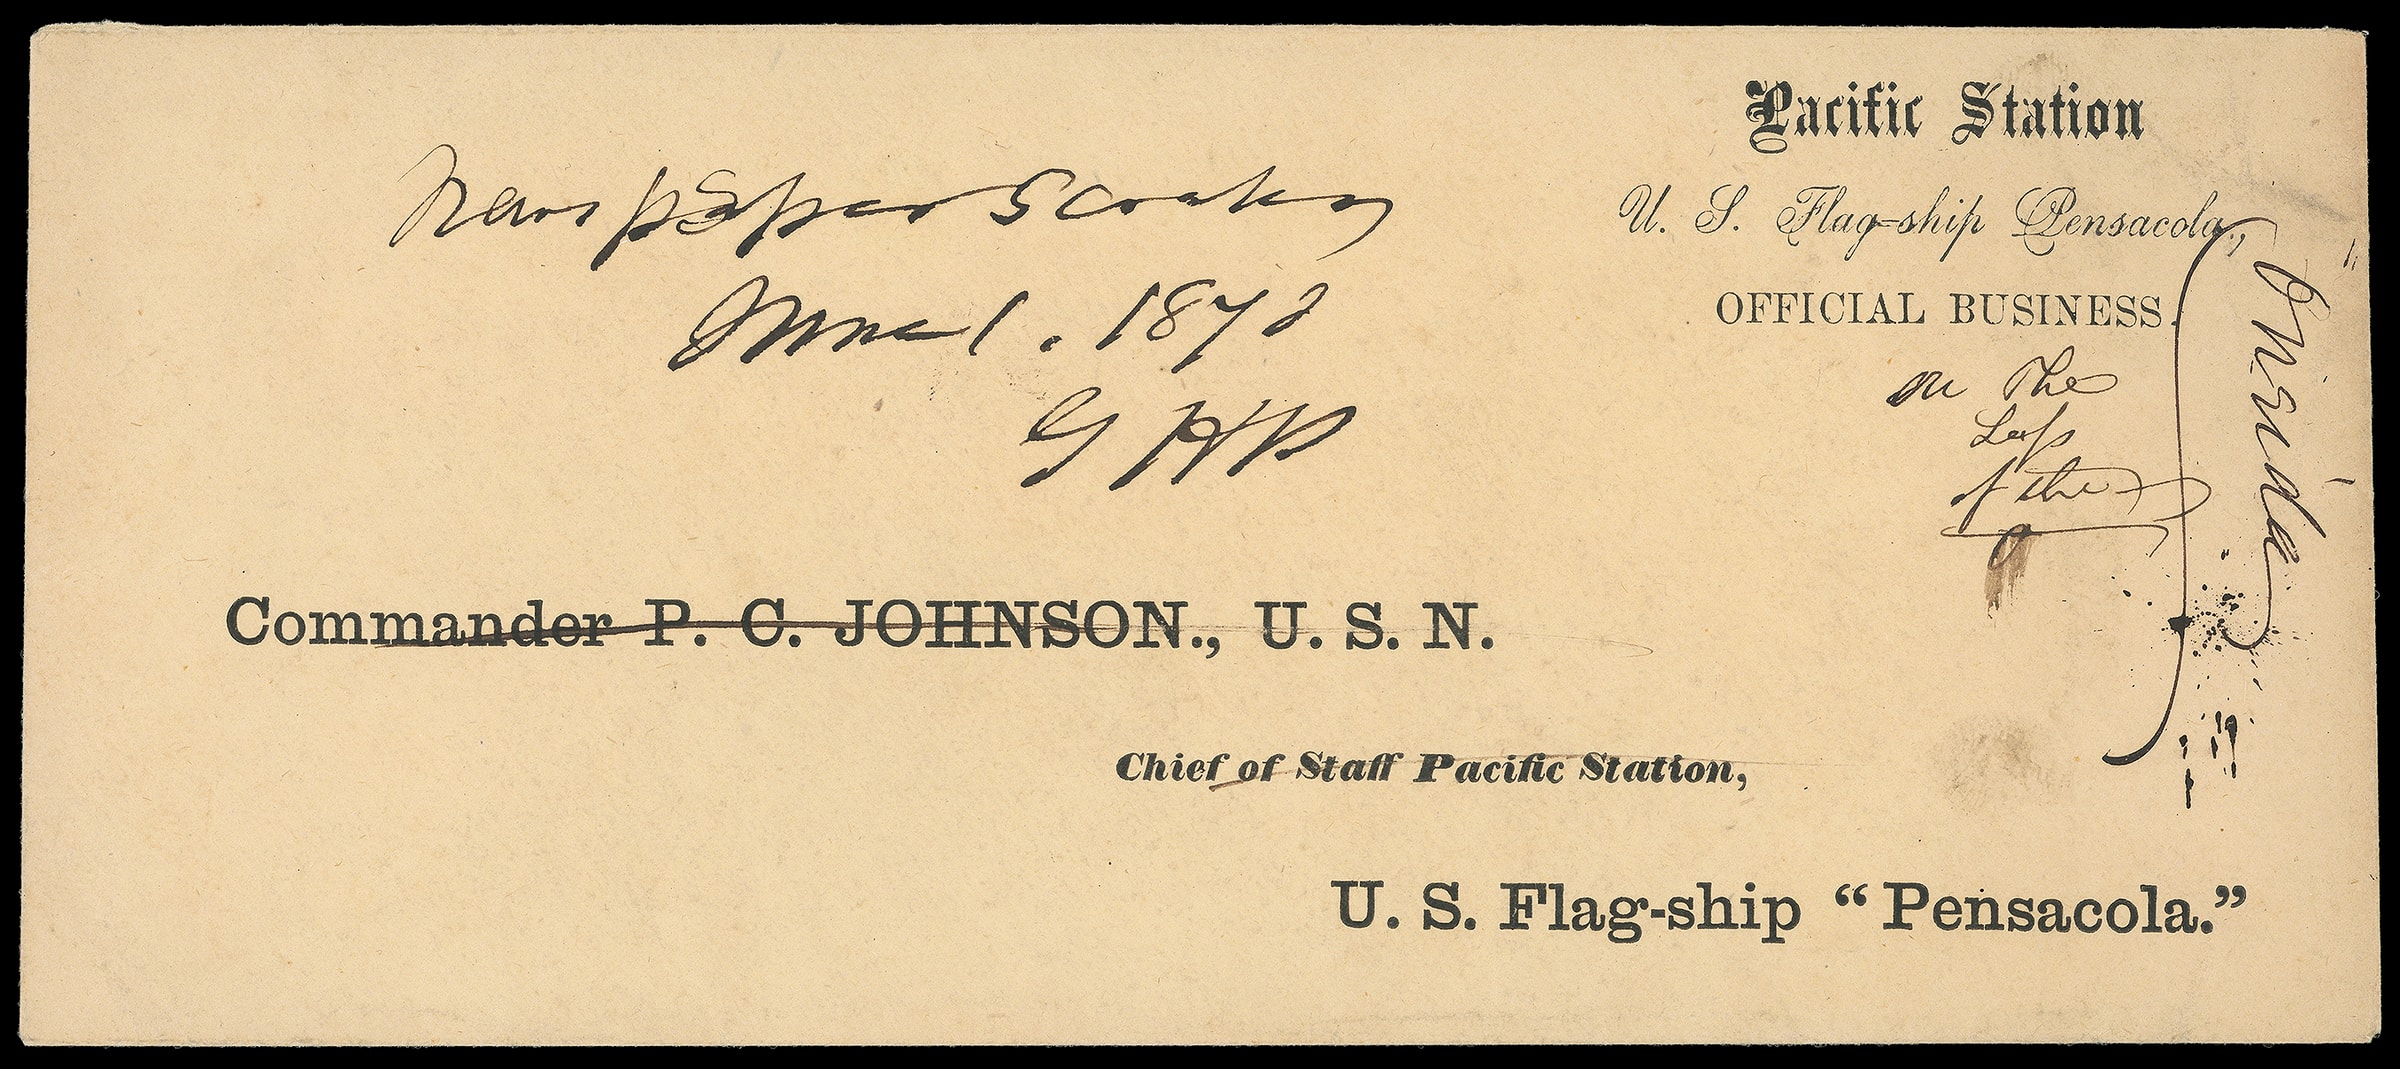 Pacific Station
U. S. Flag-ship Pensacola,
OFFICIAL BUSINESS.
Newspaper
June 1. 1873
G H P
on the
of the
Commander P. C. JOHNSON., U. S. N.
Chief of Staff Pacific Station,
U. S. Flag-ship “Pensacola.”